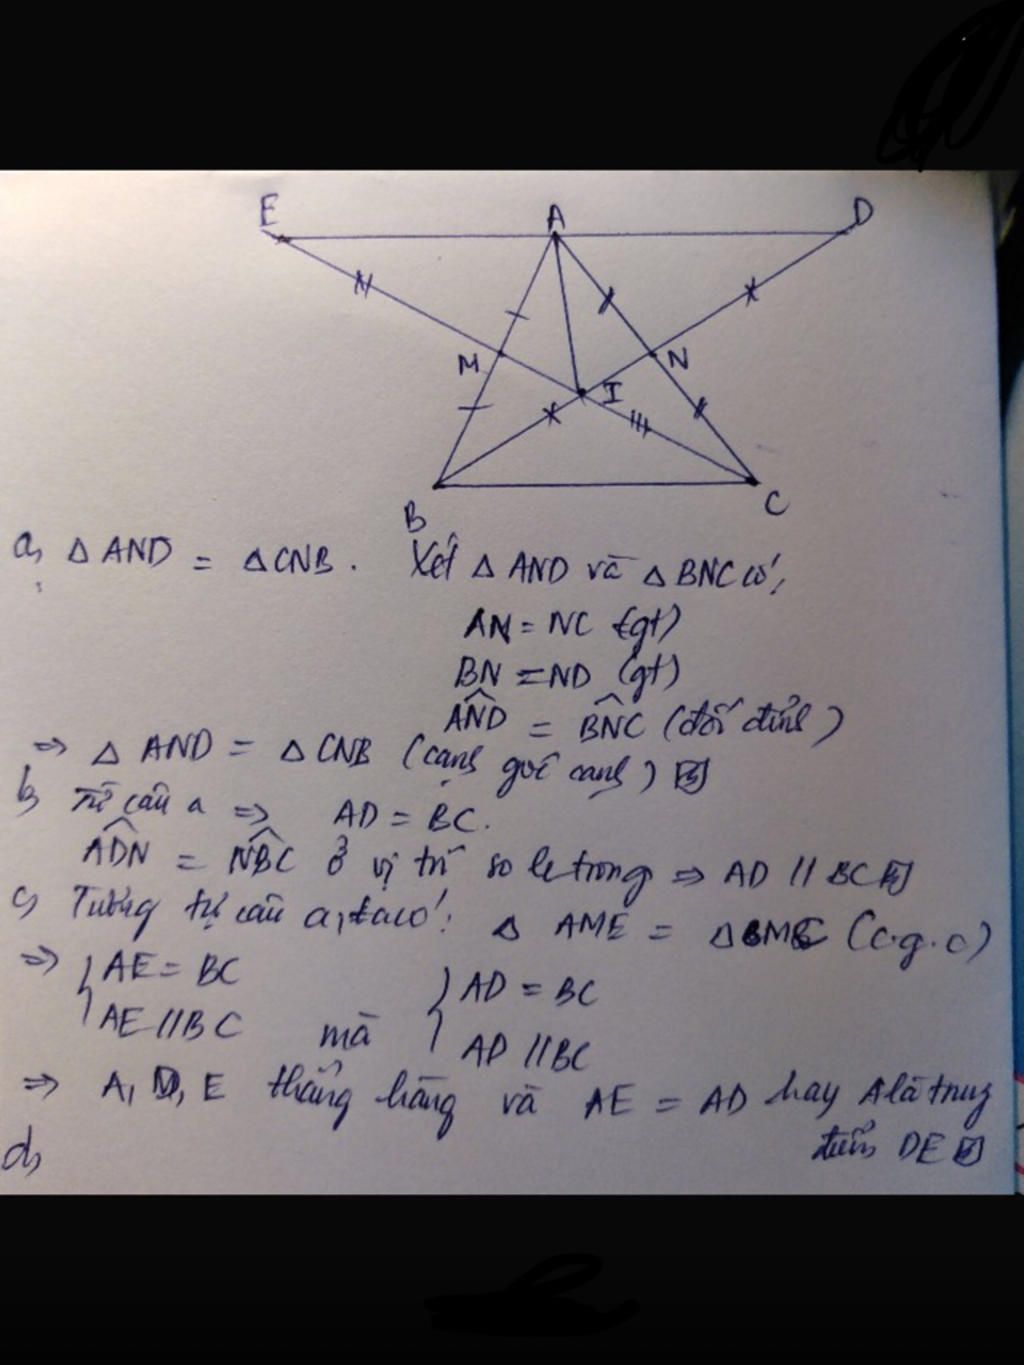 E A D
M N
I
B C
a, △ AND = △ CNB. Xét △ AND và △ BNC có:
AN = NC (gt)
BN = ND (gt)
\widehat{AND} = \widehat{BNC} (đối đỉnh)
=> △ AND = △ CNB (cạnh góc cạnh)
b, Từ câu a => AD = BC.
\widehat{ADN} = \widehat{NBC} ở vị trí so le trong => AD // BC
c, Tương tự câu a, ta có: △ AME = △BMC (c.g.c)
=> { AE = BC { AD = BC
AE // BC mà AD // BC
=> A, D, E thẳng hàng và AE = AD hay A là trung
điểm DE
d,